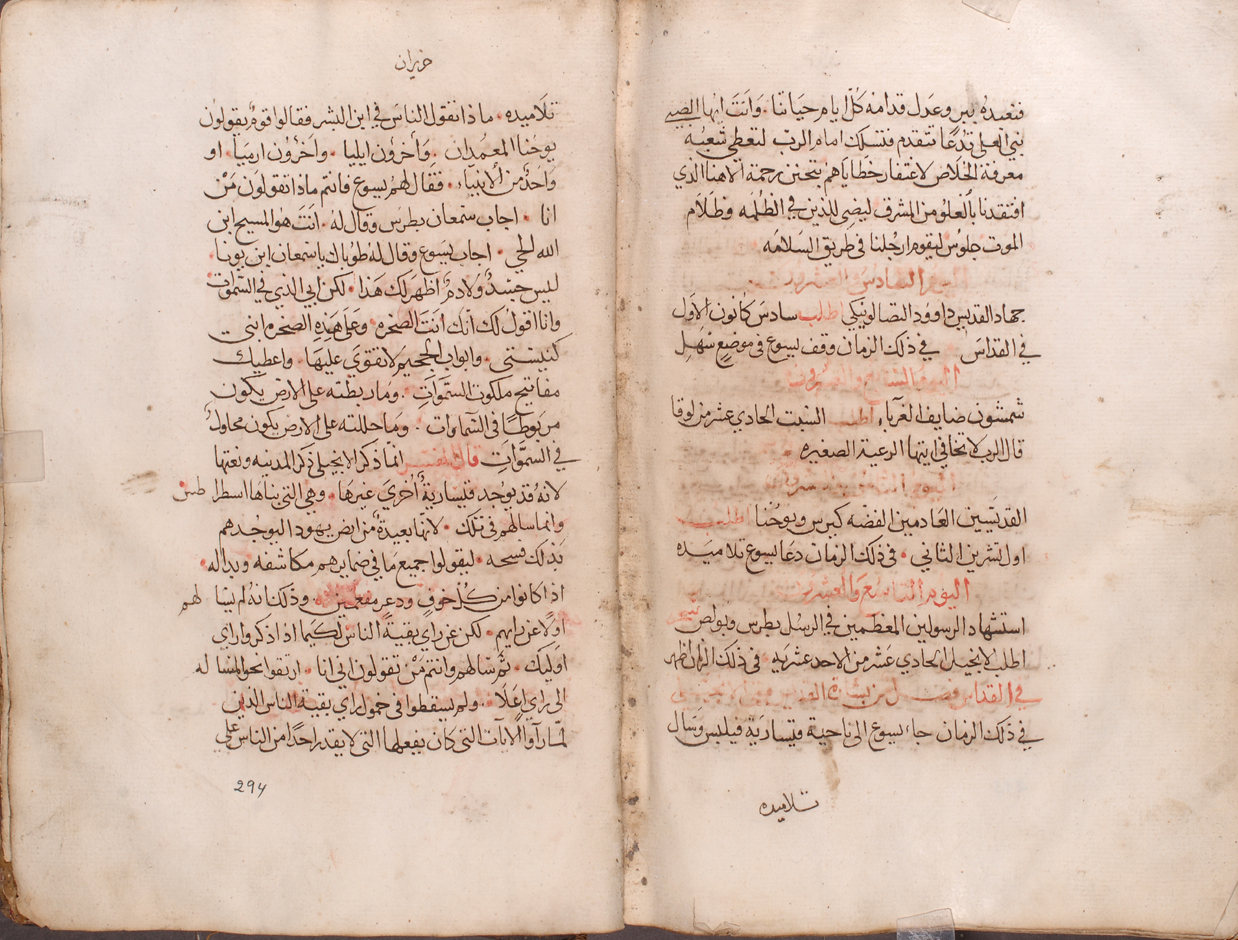 فنعبده ببر وعدل قدامه كل ايام حياتنا. وانت ايها الصبي
نبي العلي تدعا تتقدم فتسلك امام الرب لتعطي شعبه
معرفة الخلاص لاغتفار خطاياهم بتحنن رحمة الاهنا الذي
افتقدنا بالعلو من المشرق ليضي للذين في الظلمه وظلام
الموت جلوس ليقوم ارجلنا في طريق السلامه
اليوم السادس والعشرون
جهاد القديس داوود التسالونيكي اطلب سادس كانون الاول
في القداس في ذلك الزمان وقف يسوع في موضع سهل
اليوم السابع والعشرون
شمشون ضايف الغرباء اطلب السبت الحادي عشر من لوقا
قال الرب لا تخافي ايتها الرعية الصغيره
اليوم الثامن والعشرون
القديسين العادمين الفضه كيرس ويوحنا اطلب
اول تشرين الثاني. في ذلك الزمان دعا يسوع تلاميده
اليوم التاسع والعشرين
استشهاد الرسولين المعظمين في الرسل بطرس وبولص
اطلب الانجيل الحادي عشر من الاحد عشريه في ذلك الزمان اظهر
في القداس فصل من بشارة القديس متى الانجيلي
في ذلك الزمان جاء يسوع الى ناحية قيسارية فيلبس وسال
تلاميده
حزيران
تلاميده. ماذا تقول الناس في ابن البشر فقالوا قوم يقولون
يوحنا المعمدان. واخرون ايليا. واخرون ارميا. او
واحد من الانبياء. فقال لهم يسوع فانتم ماذا تقولون من
انا. اجاب سمعان بطرس وقال له. انت هو المسيح ابن
الله الحي. اجاب يسوع وقال له طوباك يا سمعان ابن يونا.
ليس جسد ولا دم اظهر لك هذا. لكن ابي الذي في السموات
وانا اقول لك انك انت الصخره وعلى هذه الصخره ابني
كنيستي. وابواب الجحيم لا تقوى عليها. واعطيك
مفاتيح ملكوت السموات. وما ربطته على الارض يكون
مربوطا في السماوات. وما حللته على الارض يكون محلولا
في السموات قال المفسر انما ذكر الانجيلي ذكر المدينه ونعتها
لانه قد يوجد قيسارية اخرى غيرها. وهي التي بناها اسطراطس
وانما سالهم في تلك. لانها بعيدة من ارض يهود اليوجدهم
بذلك فسحه. ليقولوا جميع ما في ضمايرهم مكاشفه وبداله.
اذا كانوا من كل خوف ودعر وذلك انه لم يسا لهم
اولا عن رايهم. لكن عن راي بقية الناس لكيما اذا ذكروا راي
اوليك. ثم سالهم وانتم من تقولون اني انا. ارتقوا نحو المساله
الى راي اعلا. ولم يسقطوا في خمول راي بقية الناس الذين
لما راوا الايات التي كان يفعلها التي لا يقدر احدا من الناس على
294